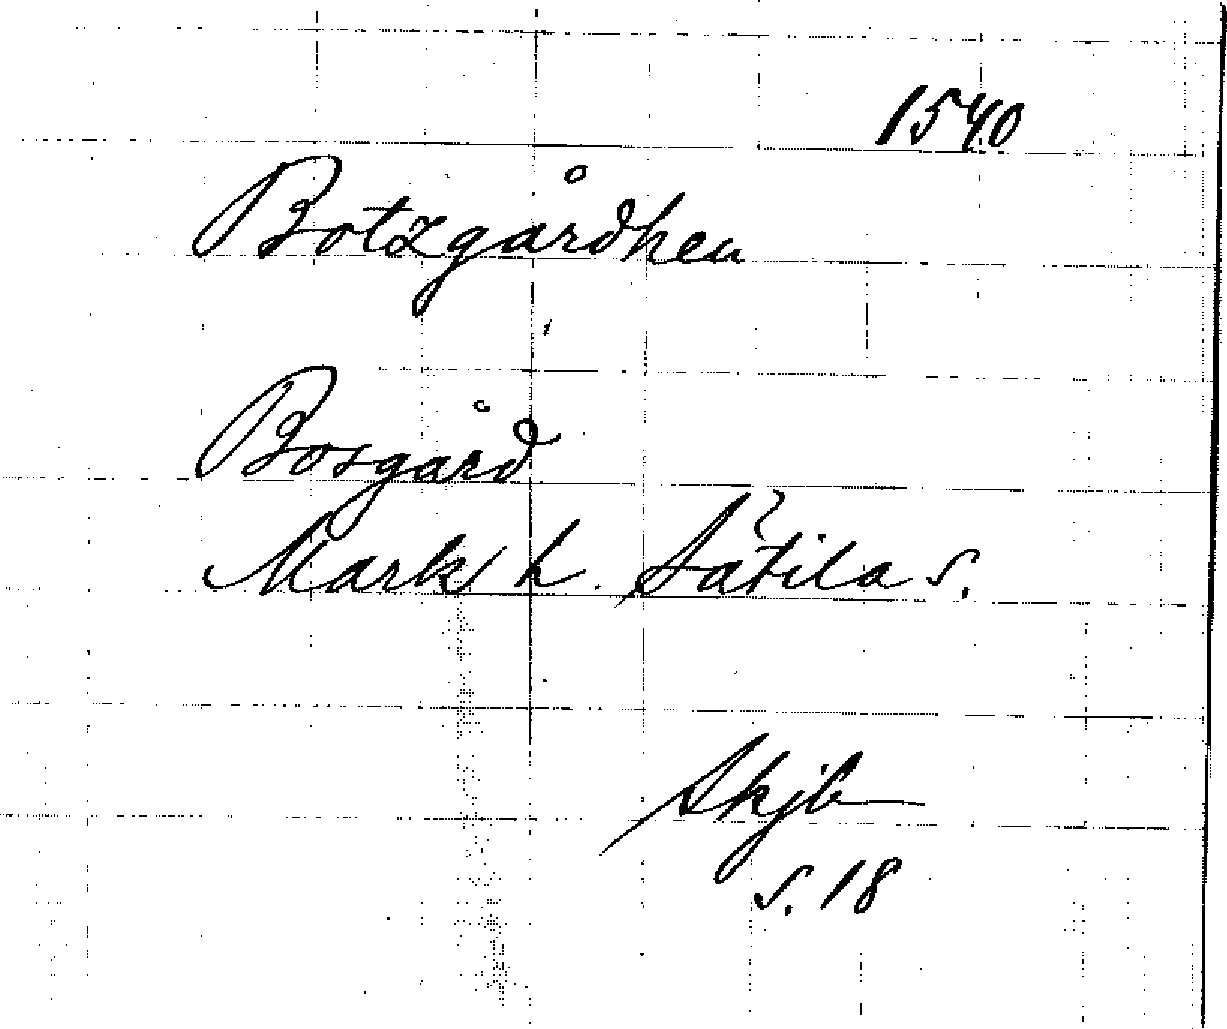 1540
Botzgårdhen
Bosgård
Marks h. Sätila s.
Skjb
s. 18